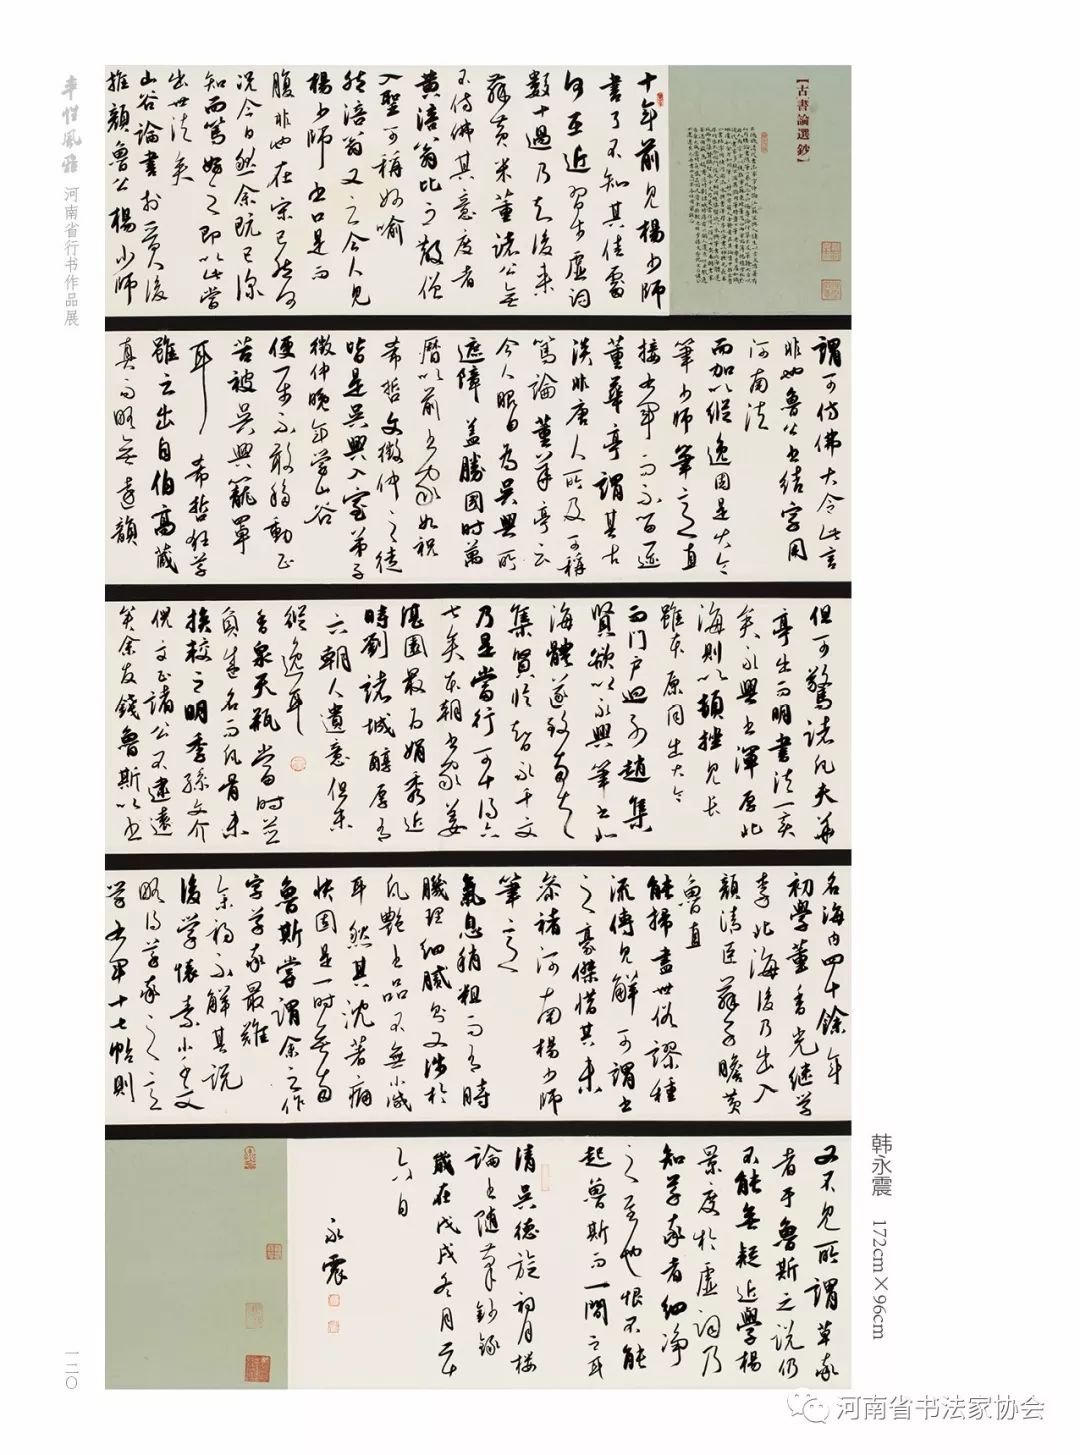 率性風雅 河南省行书作品展
【古書論選鈔】
十年前見楊少師
書了不知其佳處
何在近習步虛詞
數十過乃知後來
蘇黃米董諸公無
不傳佛其意度者
黃涪翁比之散僧
入聖可稱妙喻
然涪翁又云今人見
楊少師書口是而
腹非也在宋已然何
況今日然余既已深
知而篤好之即以此當
出世法矣
山谷論書於晉人後
推顏魯公楊少師
謂可傳佛大令此言
非也魯公書結字用
河南法
而加以縱逸固是大令
筆少師筆意直
接右軍而不留遺
董華亭謂其古
淡非唐人所及可稱
篤論董華亭云
今人眼目為吳興所
遮障蓋勝國時萬
曆以前書家如祝
希哲文徵仲之徒
皆是吳興入室弟子
徵仲晚年學山谷
便一步不敢移動正
苦被吳興籠罩
耳希哲狂草
雖云出自伯高藏
真而略無遠韻
但可驚諸凡夫華
亭出而明書法一變
矣永興書渾厚北
海則以頓挫見長
雖本原同出大令
而門戶迥別趙集
賢欲以永興筆書北
海體遂致兩失之
集賢臨智永千文
乃是當行可十得六
七矣本朝書家姜
湛園最為娟秀近
時劉諸城醇厚有
六朝人遺意但未
縱逸耳
香泉天瓶當時並
負盛名而凡骨未
換較之明季孫文介
倪文正諸公不逮遠
矣余友錢魯斯以書
名海內四十餘年
初學董香光繼學
李北海後乃出入
顏清臣蘇子瞻黃
魯直
能掃盡世俗謬種
流傳見解可謂書
之豪傑惜其未
參褚河南楊少師
筆意
氣息稍粗而有時
膩理細膩則又涉於
凡艷書品不無小減
耳然其沈著痛
快固是一時無兩
魯斯嘗謂余云作
字草家最難
余初不解其說
後學懷素小千文
略得草家之意
學右軍十七帖則
又不見所謂草家
者于魯斯之說仍
不能無疑近學楊
景度步虛詞乃
知草家者細淨
之至也恨不能
起魯斯而一問之耳
清吳德旋初月樓
論書隨筆鈔錄
歲在戊戌冬月廿
六日
永震
韩永震 172cm×96cm
一二〇
河南省书法家协会